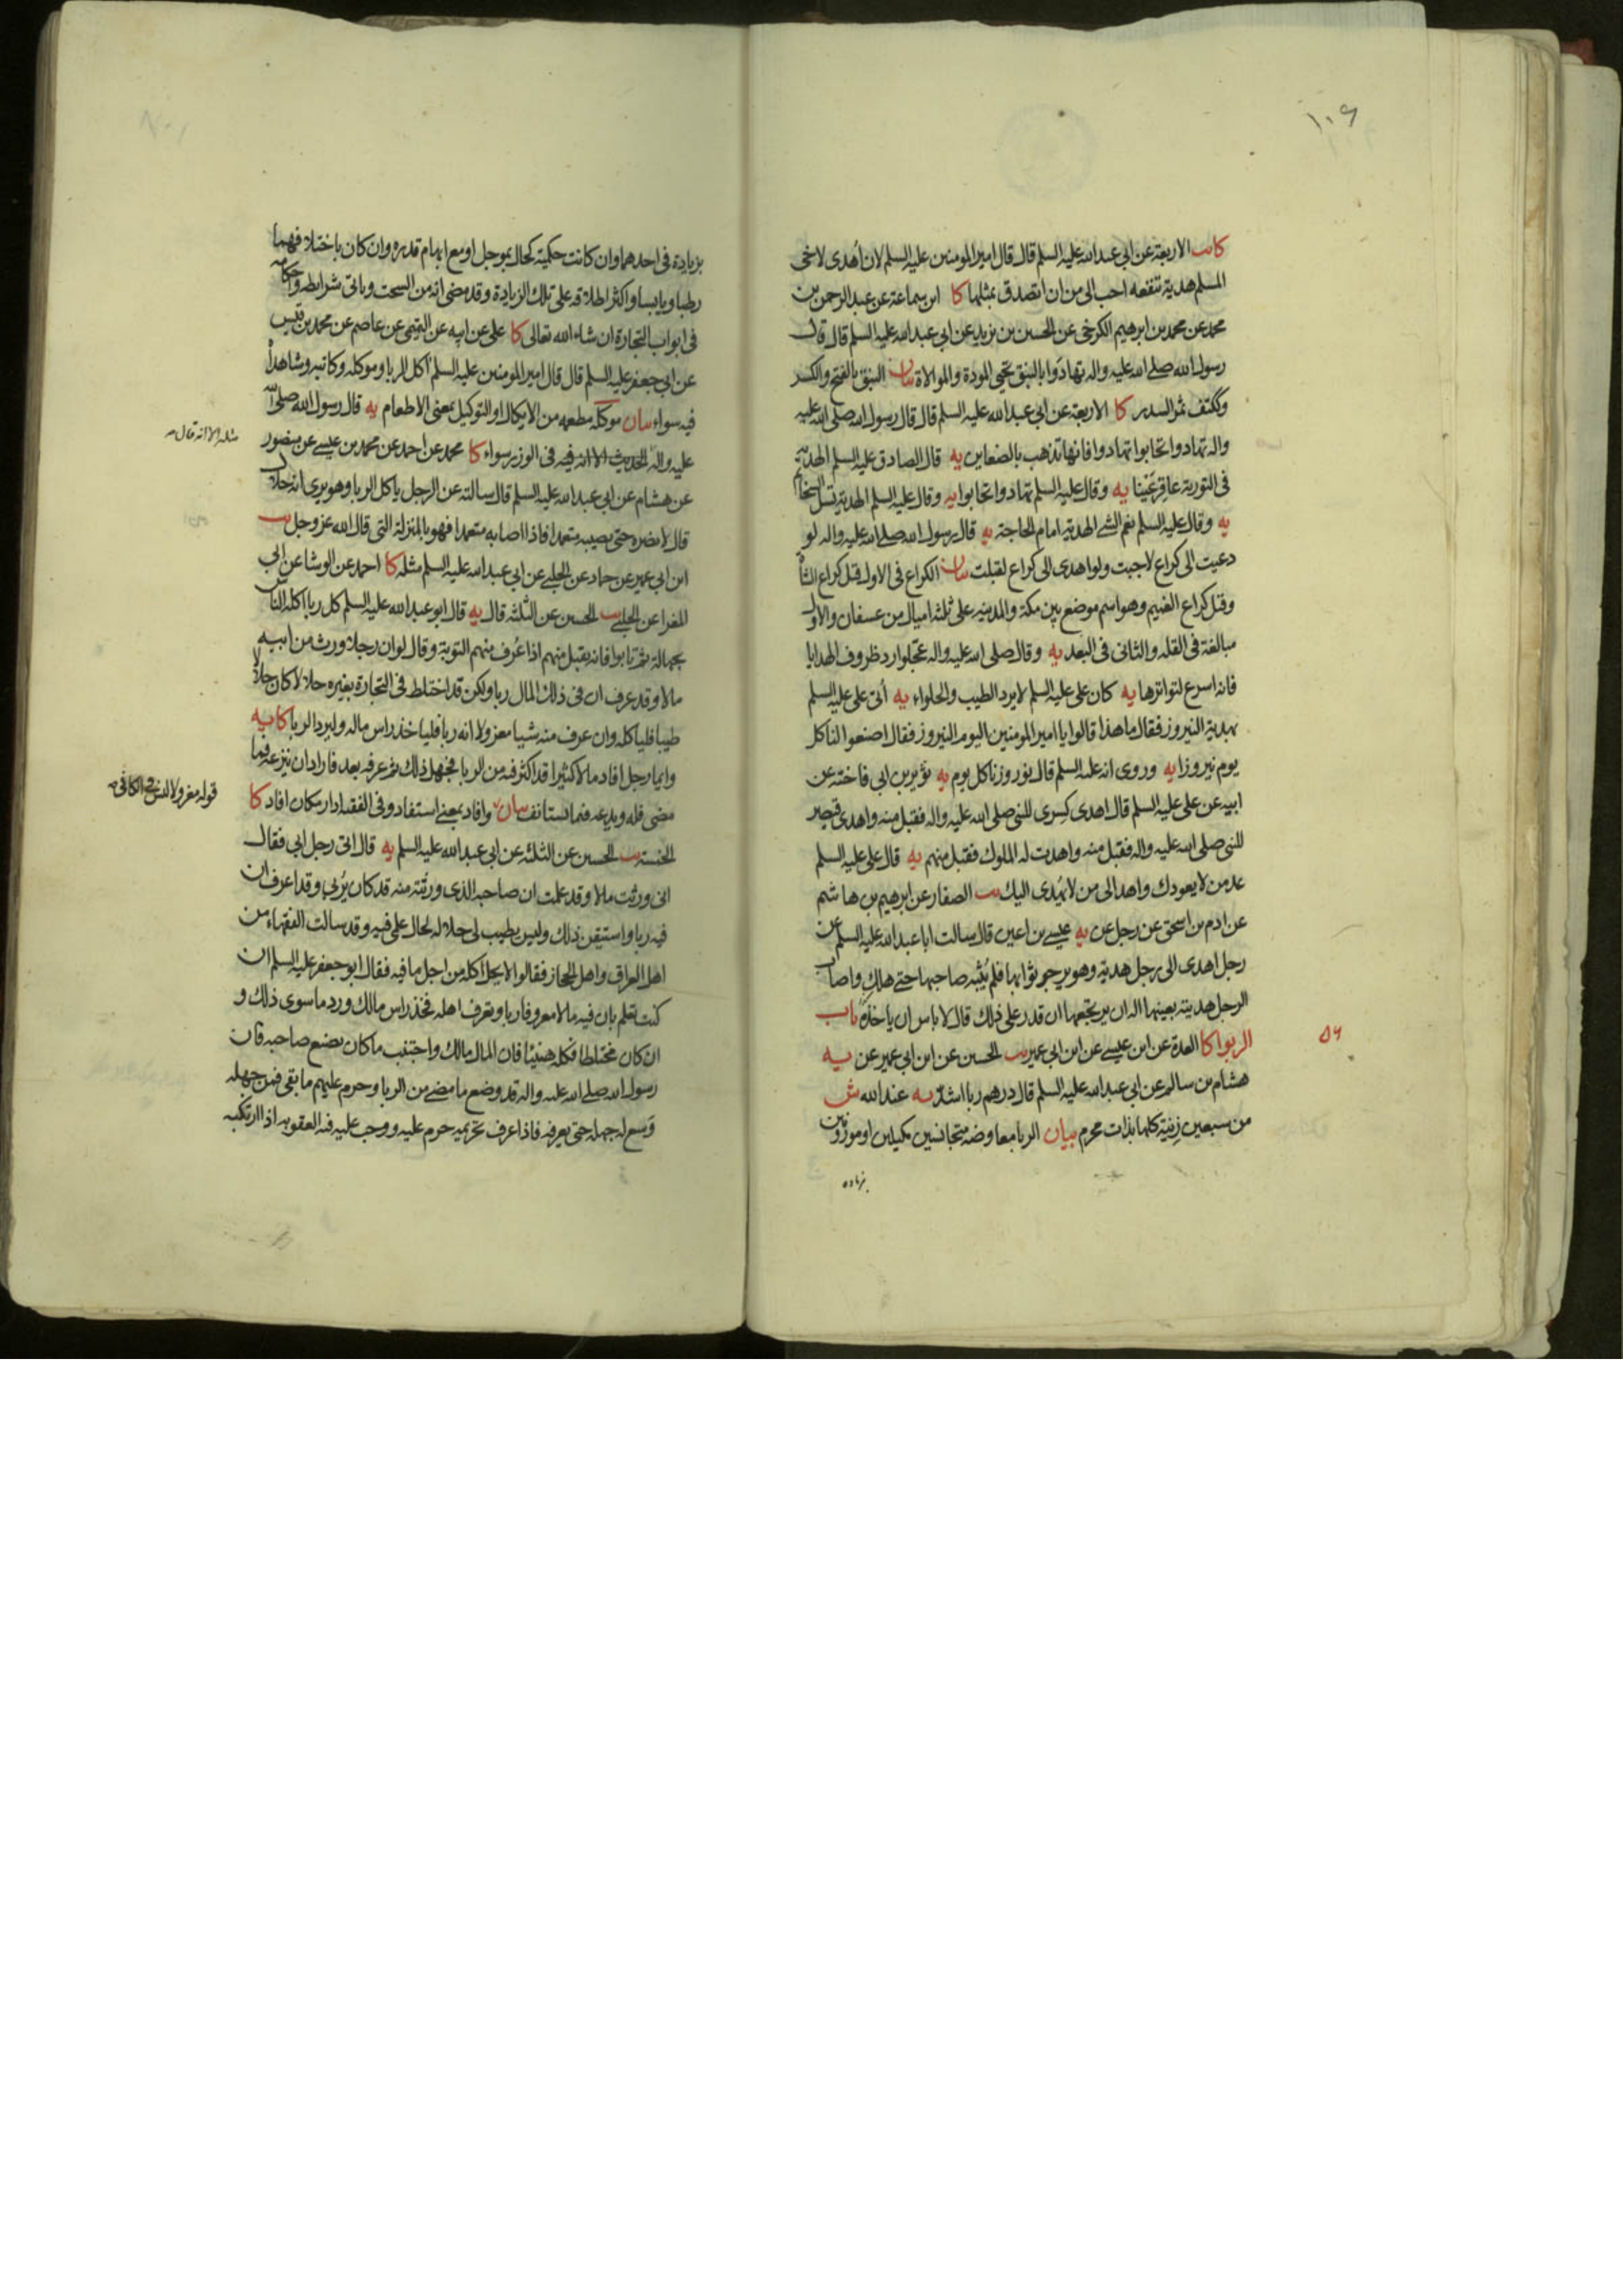 ١٠٩
كا الاربعة عن ابي عبد الله عليه السلم قال قال امير المومنين عليه السلم لان اُهدى لاخى
المسلم هدية تنفعه احب الى من ان اتصدق بمثلها كا ابن سماعة عن عبد الرحمن بن
محمد عن محمد بن ابرهيم الكوفى عن الحسين بن يزيد عن ابي عبد الله عليه السلم قال قال
رسول الله صلے الله عليه واله تهادَوا بالنبق تحيى المودة والموالاة بيان النبق بالفتح والكسر
وككتف ثمر السدر كا الاربعة عن ابي عبد الله عليه السلم قال قال رسول الله صلى الله عليه
واله تهادوا تحابوا تهادوا فانها تذهب بالضغاين يه قال الصادق عليه السلم الهدية
فى التورية عافر عينا يه وقال عليه السلم تهادوا تحابوا يه وقال عليه السلم الهدية تسل السخايم
يه وقال عليه السلم نعم الشے الهدية امام الحاجة يه قال رسول الله صلے الله عليه واله لو
دعيت الى كراع لاجبت ولو اهدى الى كراع لقبلت بيان الكراع فى الاول قيل كراع الشاة
وقيل كراع الغميم وهو اسم موضع بين مكة والمدينه على ثلثة اميال من عسفان والاول
مبالغة فى القله والثانى فى البعد يه وقال صلى الله عليه واله عجلوا رد ظروف الهدايا
فانه اسرع لتواترها يه كان على عليه السلم لا يرد الطيب والحلواء يه اُتى على عليه السلم
بهدية النيروز فقال ما هذا قالوا يا امير المومنين اليوم النيروز فقال اصنعوا لنا كل
يوم نيروزا يه وروى انه عليه السلم قال نوروزنا كل يوم يه ثوير بن ابي فاخته عن
ابيه عن على عليه السلم قال اهدى كسرى للنبى صلى الله عليه واله فقبل منه واهدى قيصر
للنبى صلى الله عليه واله فقبل منه واهدت له الملوك فقبل منهم يه قال على عليه السلم
عد من لا يعودك واهد الى من لا يُهدى اليك يب الصفار عن ابرهيم بن هاشم
عن ادم بن اسحق عن رجل عن يه عيسے بن اعين قال سالت ابا عبد الله عليه السلم عن
رجل اهدى الى رجل هدية وهو يرجو ثوابها فلم يُثِبْه صاحبها حتے هلك واصاب
الرجل هديته بعينها اله ان يرتجعها ان قدر على ذلك قال لا باس ان ياخذه باب
٥٦
الربوا كا العدة عن ابن عيسے عن ابن ابي عمير يب الحسين عن ابن ابي عمير عن يه
هشام بن سالم عن ابي عبد الله عليه السلم قال درهم ربا اشد يه عند الله ش
من سبعين زِنْيَة كلها بذات محرم بيان الربا معاوضة متجانسين مكيلين او موزونين
بزيادة
بزيادة فى احدهما وان كانت حكمية كحال بموجل او مع ابهام قدره وان كان باختلافهما
رطبا ويابسا واكثر اطلاقه على تلك الزيادة وقد مضى انه من السحت وياتى شرايطه واحكامه
فى ابواب التجارة ان شاء الله تعالى كا على عن ابيه عن التميمى عن عاصم عن محمد بن قيس
عن ابي جعفر عليه السلم قال قال امير المومنين عليه السلم آكل الربا وموكله وكاتبه وشاهداه
فيه سواء بيان موكله مطعمه من الايكال او التوكيل بمعنى الاطعام يه قال رسول الله صلى الله
عليه واله الحديث الا انه فيه فى الوزر سواء كا محمد عن احمد عن محمد بن عيسے عن منصور
مثله الا انه قال
عن هشام عن ابي عبد الله عليه السلم قال سالته عن الرجل ياكل الربا وهو يرى انه حلال
قال لا يضره حتى يصيبه متعمدا فاذا اصابه متعمدا فهو بالمنزلة التى قال الله عز وجل يب
ابن ابي عمير عن حماد عن الحلبے عن ابي عبد الله عليه السلم مثله كا احمد عن الوشا عن ابي
المغرا عن الحلبے يب الحسين عن الثلثة قال يه قال ابو عبد الله عليه السلم كل ربا اكله الناس
بجهالة ثم تابوا فانه يقبل منهم اذا عُرف منهم التوبة وقال لو ان رجلا ورث من ابيه
مالا وقد عرف ان فى ذلك المال ربا ولكن قد اختلط فى التجارة بغيره حلالا كان حلالا
طيبا فلياكله وان عرف منه شيا معزولا انه ربا فلياخذ راس ماله وليرد الربا كا يه
وايما رجل افاد مالا كثيرا قد اكثر فيه من الربا فجهل ذلك ثم عرفه بعد فاراد ان ينزعه فما
قوله معزولا ليس فى الكافى
مضى فله ويدعه فيما يستانف بيان وافاد بمعنى استفاد وفى الفقيه ادار مكان افاد كا
الخمسة يب الحسين عن الثلثة عن ابي عبد الله عليه السلم يه قال اتى رجل ابي فقال
انى ورثت مالا وقد علمت ان صاحبه الذى ورثته منه قد كان يُربي وقد اعرف ان
فيه ربا واستيقن ذلك وليس يطيب لى حلاله لحال علمى فيه وقد سالت الفقهاء من
اهل العراق واهل الحجاز فقالوا لا يحل اكله من اجل ما فيه فقال ابو جعفر عليه السلم ان
كنت تعلم بان فيه مالا معروفا ربا وتعرف اهله فخذ راس مالك ورد ما سوى ذلك و
ان كان مختلطا فكله هنيئا فان المال مالك واجتنب ما كان يصنع صاحبه فان
رسول الله صلے الله عليه واله قد وضع ما مضے من الربا وحرم عليهم ما بقى فمن جهله
وَسِع له جهله حتى يعرفه فاذا عرف تحريمه حرم عليه ووجب عليه فيه العقوبه اذا ارتكبه